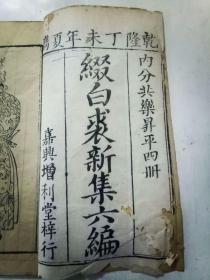 乾隆丁未年夏鐫
內分共樂昇平四冊
綴白裘新集六編
嘉興增利堂梓行